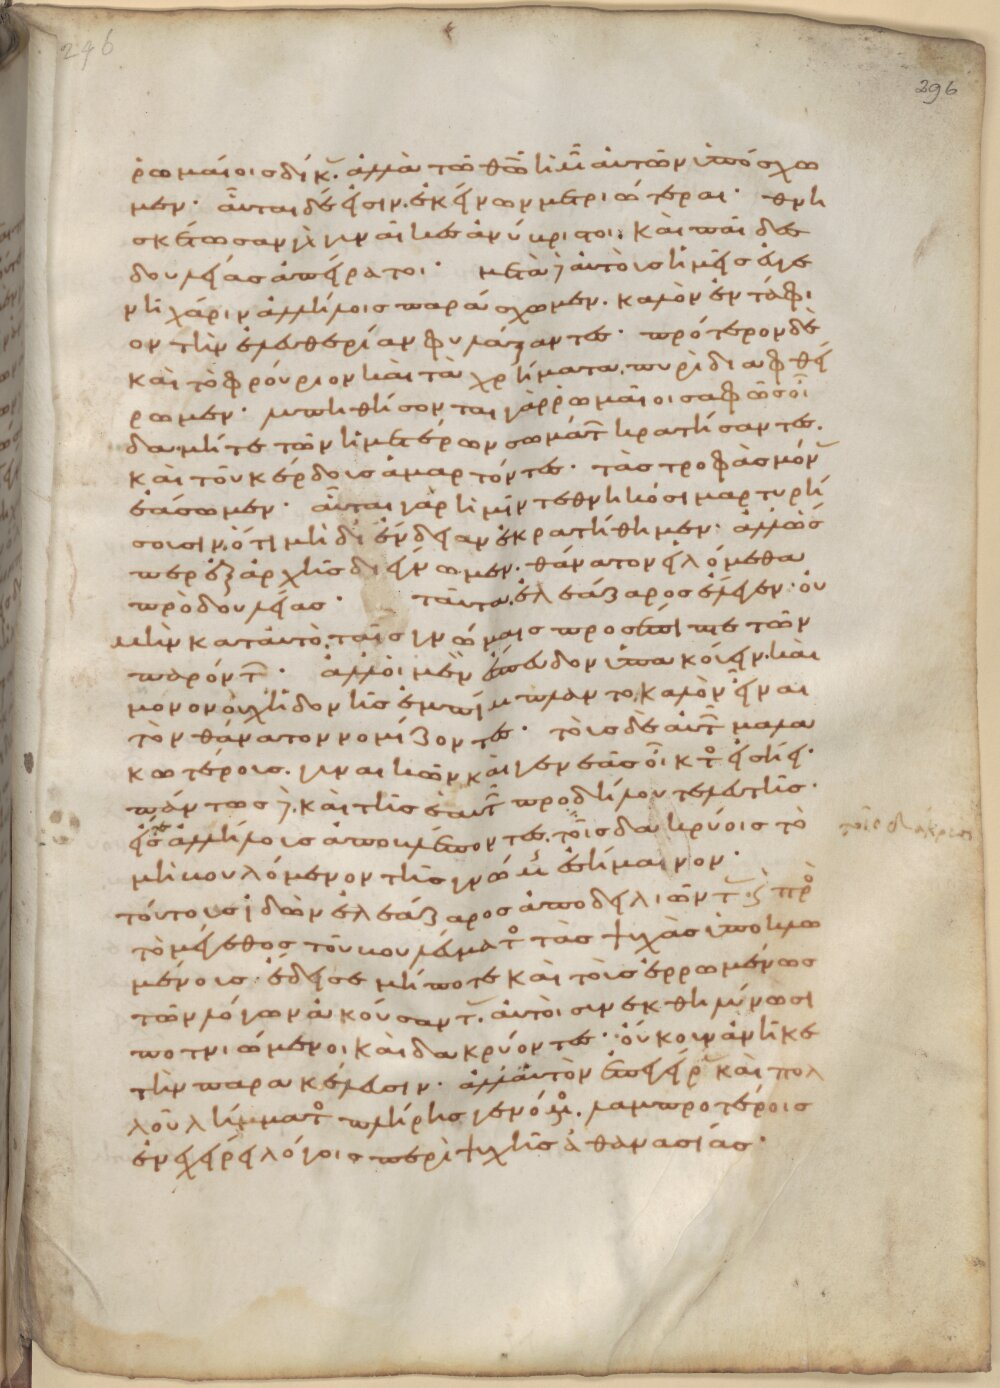 296
296
ῥωμαίοις δίκ. ἀλλὰ τῶ θῶ δι ἡμ αὐτῶν ὑπόσχω
μεν· αὗται δέ εἰσιν ἐκείνων μετριώτεραι· θνη
σκέτωσαν γὰρ γυναῖκες ἀνύβριστοι· καὶ παῖδες
δουλείας ἀπείρατοι· μετὰ δ αὐτοὺς ἡμεῖς εὐγε
νῆ χάριν ἀλλήλοις παράσχωμεν. καλὸν ἐντάφι
ον τὴν ἐλευθερίαν φυλάξαντες· πρότερον δὲ
καὶ τὸ φρούριον καὶ τὰ χρήματα πυρὶ διαφθεί
ρωμεν· λυπηθήσονται γὰρ ῥωμαῖοι σαφῶς οἶ
δα μήτε τῶν ἡμετέρων σωμάτ κρατήσαντες.
καὶ τοῦ κέρδους ἁμαρτόντες· τὰς τροφὰς μόν
ἐάσωμεν· αὗται γὰρ ἡμῖν τεθνηκόσι μαρτυρή
σουσιν ὅτι μὴ δι ἔνδειαν ἐκρατήθημεν· ἀλλ ὥσ
περ ἐξ ἀρχῆς διέγνωμεν· θάνατον ἑλόμεθα
πρὸ δουλείας· ταῦτα ἐλεάζαρος ἔλεγεν· οὐ
μὴν κατ αὐτὸ ταῖς γνώμαις προσέπιπτε τῶν
παρόντ· ἀλλ οἱ μὲν ἔσπευδον ὑπακούειν. καὶ
μόνον οὐχὶ ἡδονῆς ἐνεπίμπλαντο καλὸν εἶναι
τὸν θάνατον νομίζοντες· τοῖς δὲ αὐτ μαλα
κωτέροις. γυναικῶν καὶ γενεᾶς οἶκτ εἰσήει·
πάντως δ. καὶ τῆς ἑαυτ προδήλου τελευτῆς·
εἰς ἀλλήλους ἀποβλέποντες τοῖς δακρύοις τὸ
μὴ βουλόμενον τῆς γνώμ ἐσήμαινον·
τούτους ἰδὼν ἐλεάζαρος ἀποδειλιῶντ· καὶ πρ
τὸ μέγεθος τοῦ βουλεύματ τὰς ψυχὰς ὑποκλω
μένους· ἔδεισε μήποτε καὶ τοὺς ἐρρωμένως
τῶν λόγων ἀκούσαντ. αὐτοὶ συνεκθηλύνωσι
ποτνιώμενοι καὶ δακρύοντες· οὔκουν ἀνῆκε
τὴν παρακέλευσιν· ἀλλ αὑτὸν ἐπεγείρ καὶ πολ
λοῦ λήμματ πλήρης γενόμ. λαμπροτέροις
ἐνεχείρει λόγοις περὶ ψυχῆς ἀθανασίας·
τοῖς δάκρυσι